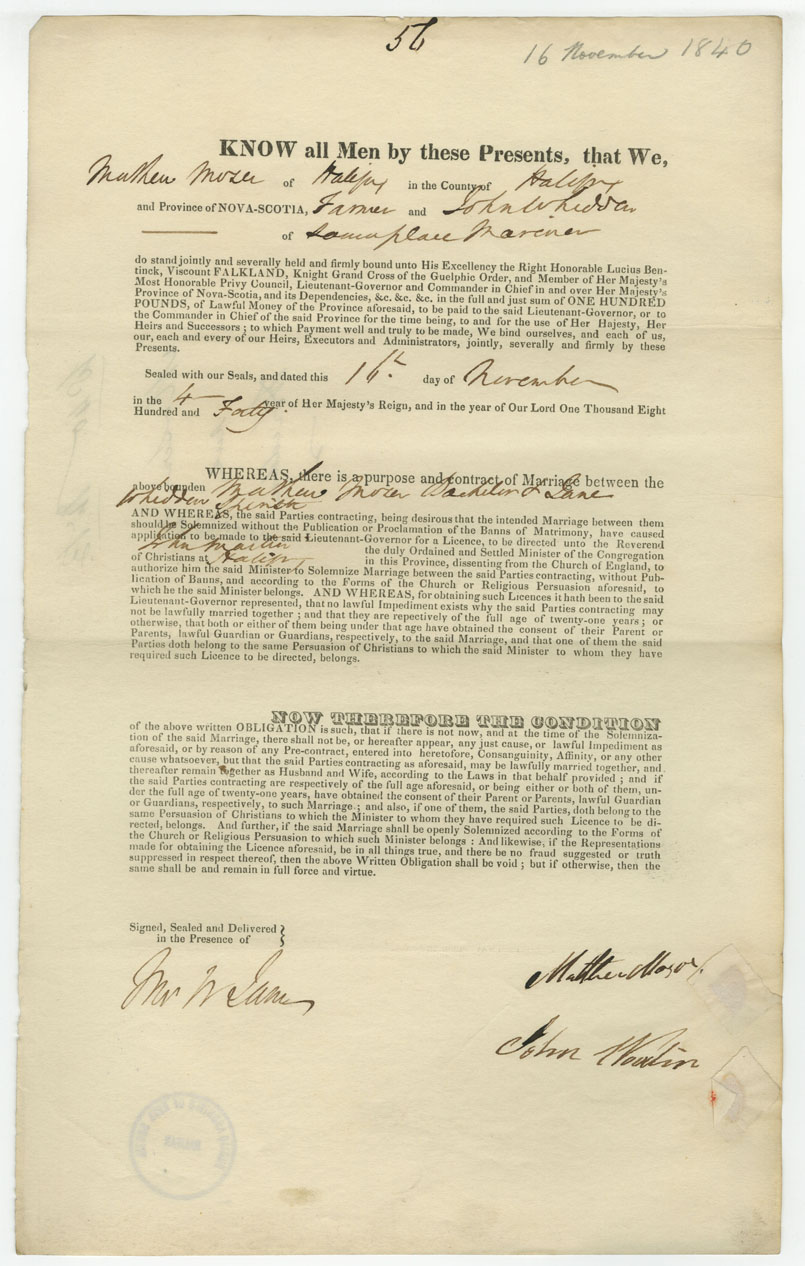 56
16 November 1840
KNOW all Men by these Presents, that We,
Mathew Moser of Halifax in the County of Halifax
and Province of NOVA-SCOTIA, Farmer and John Whidden
of same place Mariner
do stand jointly and severally held and firmly bound unto His Excellency the Right Honorable Lucius Ben-
tinck, Viscount FALKLAND, Knight Grand Cross of the Guelphic Order, and Member of Her Majesty's
Most Honorable Privy Council, Lieutenant-Governor and Commander in Chief in and over Her Majesty's
Province of Nova-Scotia, and its Dependencies, &c. &c. &c. in the full and just sum of ONE HUNDRED
POUNDS, of Lawful Money of the Province aforesaid, to be paid to the said Lieutenant-Governor, or to
the Commander in Chief of the said Province for the time being, to and for the use of Her Hajesty, Her
Heirs and Successors ; to which Payment well and truly to be made, We bind ourselves, and each of us,
our, each and every of our Heirs, Executors and Administrators, jointly, severally and firmly by these
Presents.
Sealed with our Seals, and dated this 16th. day of November
in the 4 year of Her Majesty's Reign, and in the year of Our Lord One Thousand Eight
Hundred and Forty.
WHEREAS, there is a purpose and contract of Marriage between the
above bounden Mathew Moser Bachelor & Jane
Whidden Spinster
AND WHEREAS, the said Parties contracting, being desirous that the intended Marriage between them
should be Solemnized without the Publication or Proclamation of the Banns of Matrimony, have caused
application to be made to the said Lieutenant-Governor for a Licence, to be directed unto the Reverend
John Martin the duly Ordained and Settled Minister of the Congregation
of Christians at Halifax in this Province, dissenting from the Church of England, to
authorize him the said Minister to Solemnize Marriage between the said Parties contracting, without Pub-
lication of Banns, and according to the Forms of the Church or Religious Persuasion aforesaid, to
which he the said Minister belongs. AND WHEREAS, for obtaining such Licences it hath been to the said
Lieutenant-Governor represented, that no lawful Impediment exists why the said Parties contracting may
not be lawfully married together ; and that they are repectively of the full age of twenty-one years ; or
otherwise, that both or either of them being under that age have obtained the consent of their Parent or
Parents, lawful Guardian or Guardians, respectively, to the said Marriage, and that one of them the said
Parties doth belong to the same Persuasion of Christians to which the said Minister to whom they have
required such Licence to be directed, belongs.
NOW THEREFORE THE CONDITION
of the above written OBLIGATION is such, that if there is not now, and at the time of the Solemniza-
tion of the said Marriage, there shall not be, or hereafter appear, any just cause, or lawful Impediment as
aforesaid, or by reason of any Pre-contract, entered into heretofore, Consanguinity, Affinity, or any other
cause whatsoever, but that the said Parties contracting as aforesaid, may be lawfully married together, and
thereafter remain together as Husband and Wife, according to the Laws in that behalf provided ; and if
the said Parties contracting are respectively of the full age aforesaid, or being either or both of them, un-
der the full age of twenty-one years, have obtained the consent of their Parent or Parents, lawful Guardian
or Guardians, respectively, to such Marriage ; and also, if one of them, the said Parties, doth belong to the
same Persuasion of Christians to which the Minister to whom they have required such Licence to be di-
rected, belongs. And further, if the said Marriage shall be openly Solemnized according to the Forms of
the Church or Religious Persuasion to which such Minister belongs : And likewise, if the Representations
made for obtaining the Licence aforesaid, be in all things true, and there be no fraud suggested or truth
suppressed in respect thereof, then the above Written Obligation shall be void ; but if otherwise, then the
same shall be and remain in full force and virtue.
Signed, Sealed and Delivered
in the Presence of
Mathew Moser
John